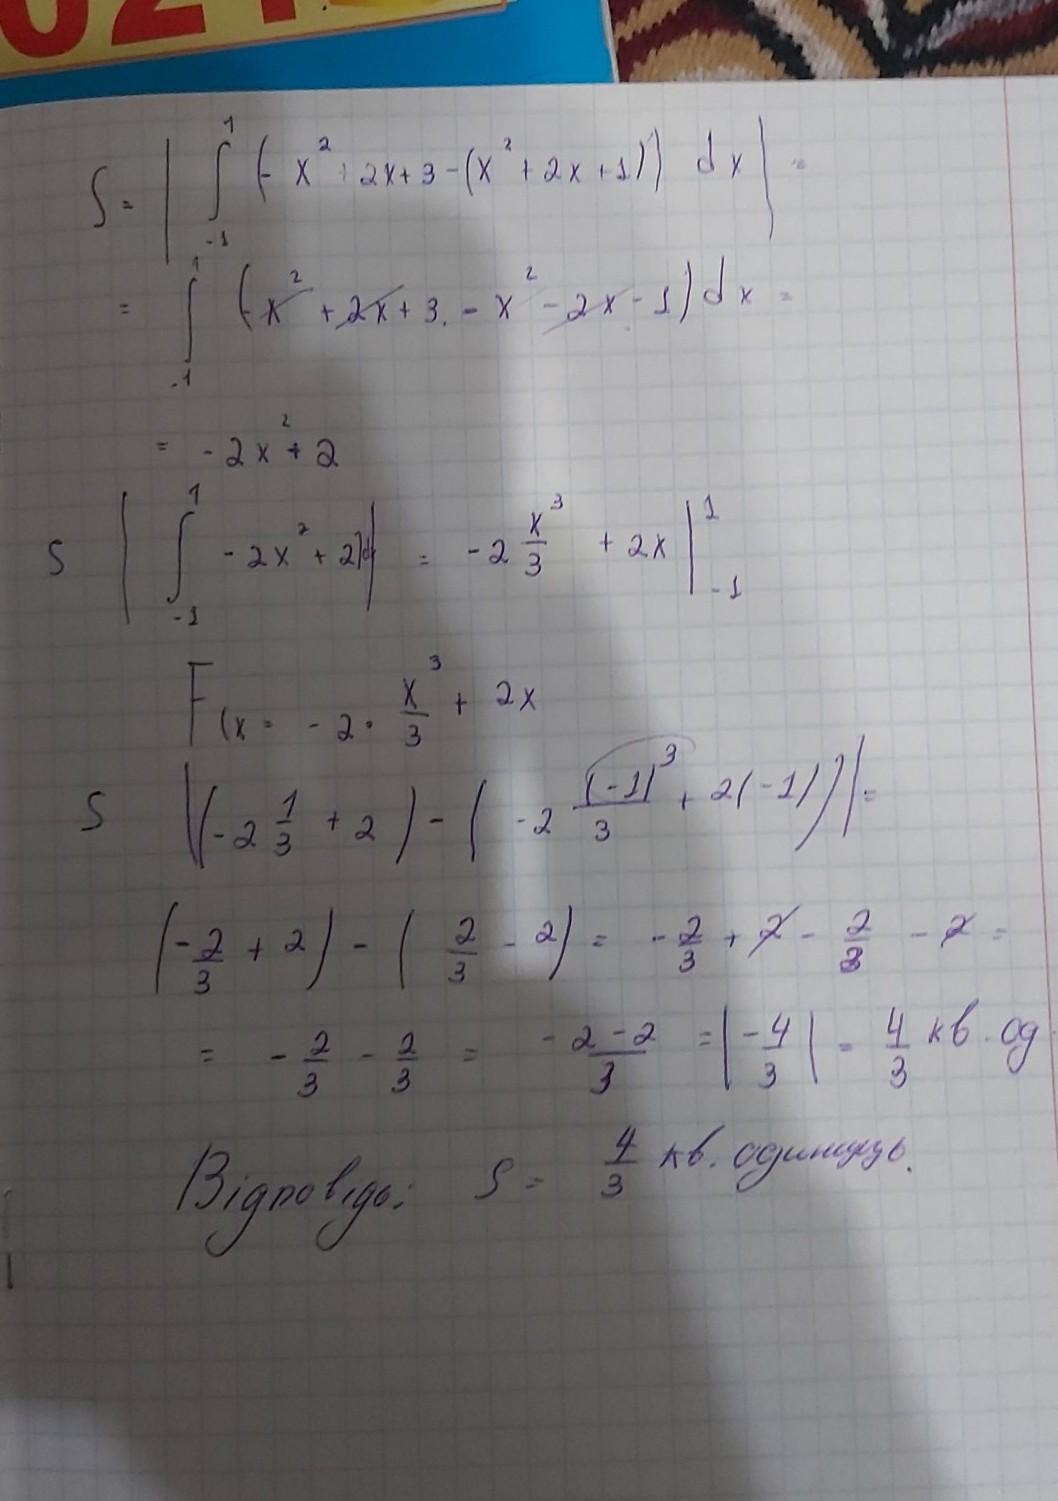 S = | ∫₋₁¹ (-x² + 2x + 3 - (x² + 2x + 1)) dx | =
= ∫₋₁¹ (-x² + 2x + 3. - x² - 2x - 1) dx =
= -2x² + 2
S | ∫₋₁¹ -2x² + 2)d| = -2 x³/3 + 2x |₋₁¹
F(x = -2 · x³/3 + 2x
S |(-2 1/3 + 2) - (-2 (-1)³/3 + 2(-1))| =
(-2/3 + 2) - (2/3 - 2) = -2/3 + 2 - 2/3 - 2 =
= -2/3 - 2/3 = -2-2/3 = |-4/3| = 4/3 кв. од
Відповідь: S = 4/3 кв. одиниць.